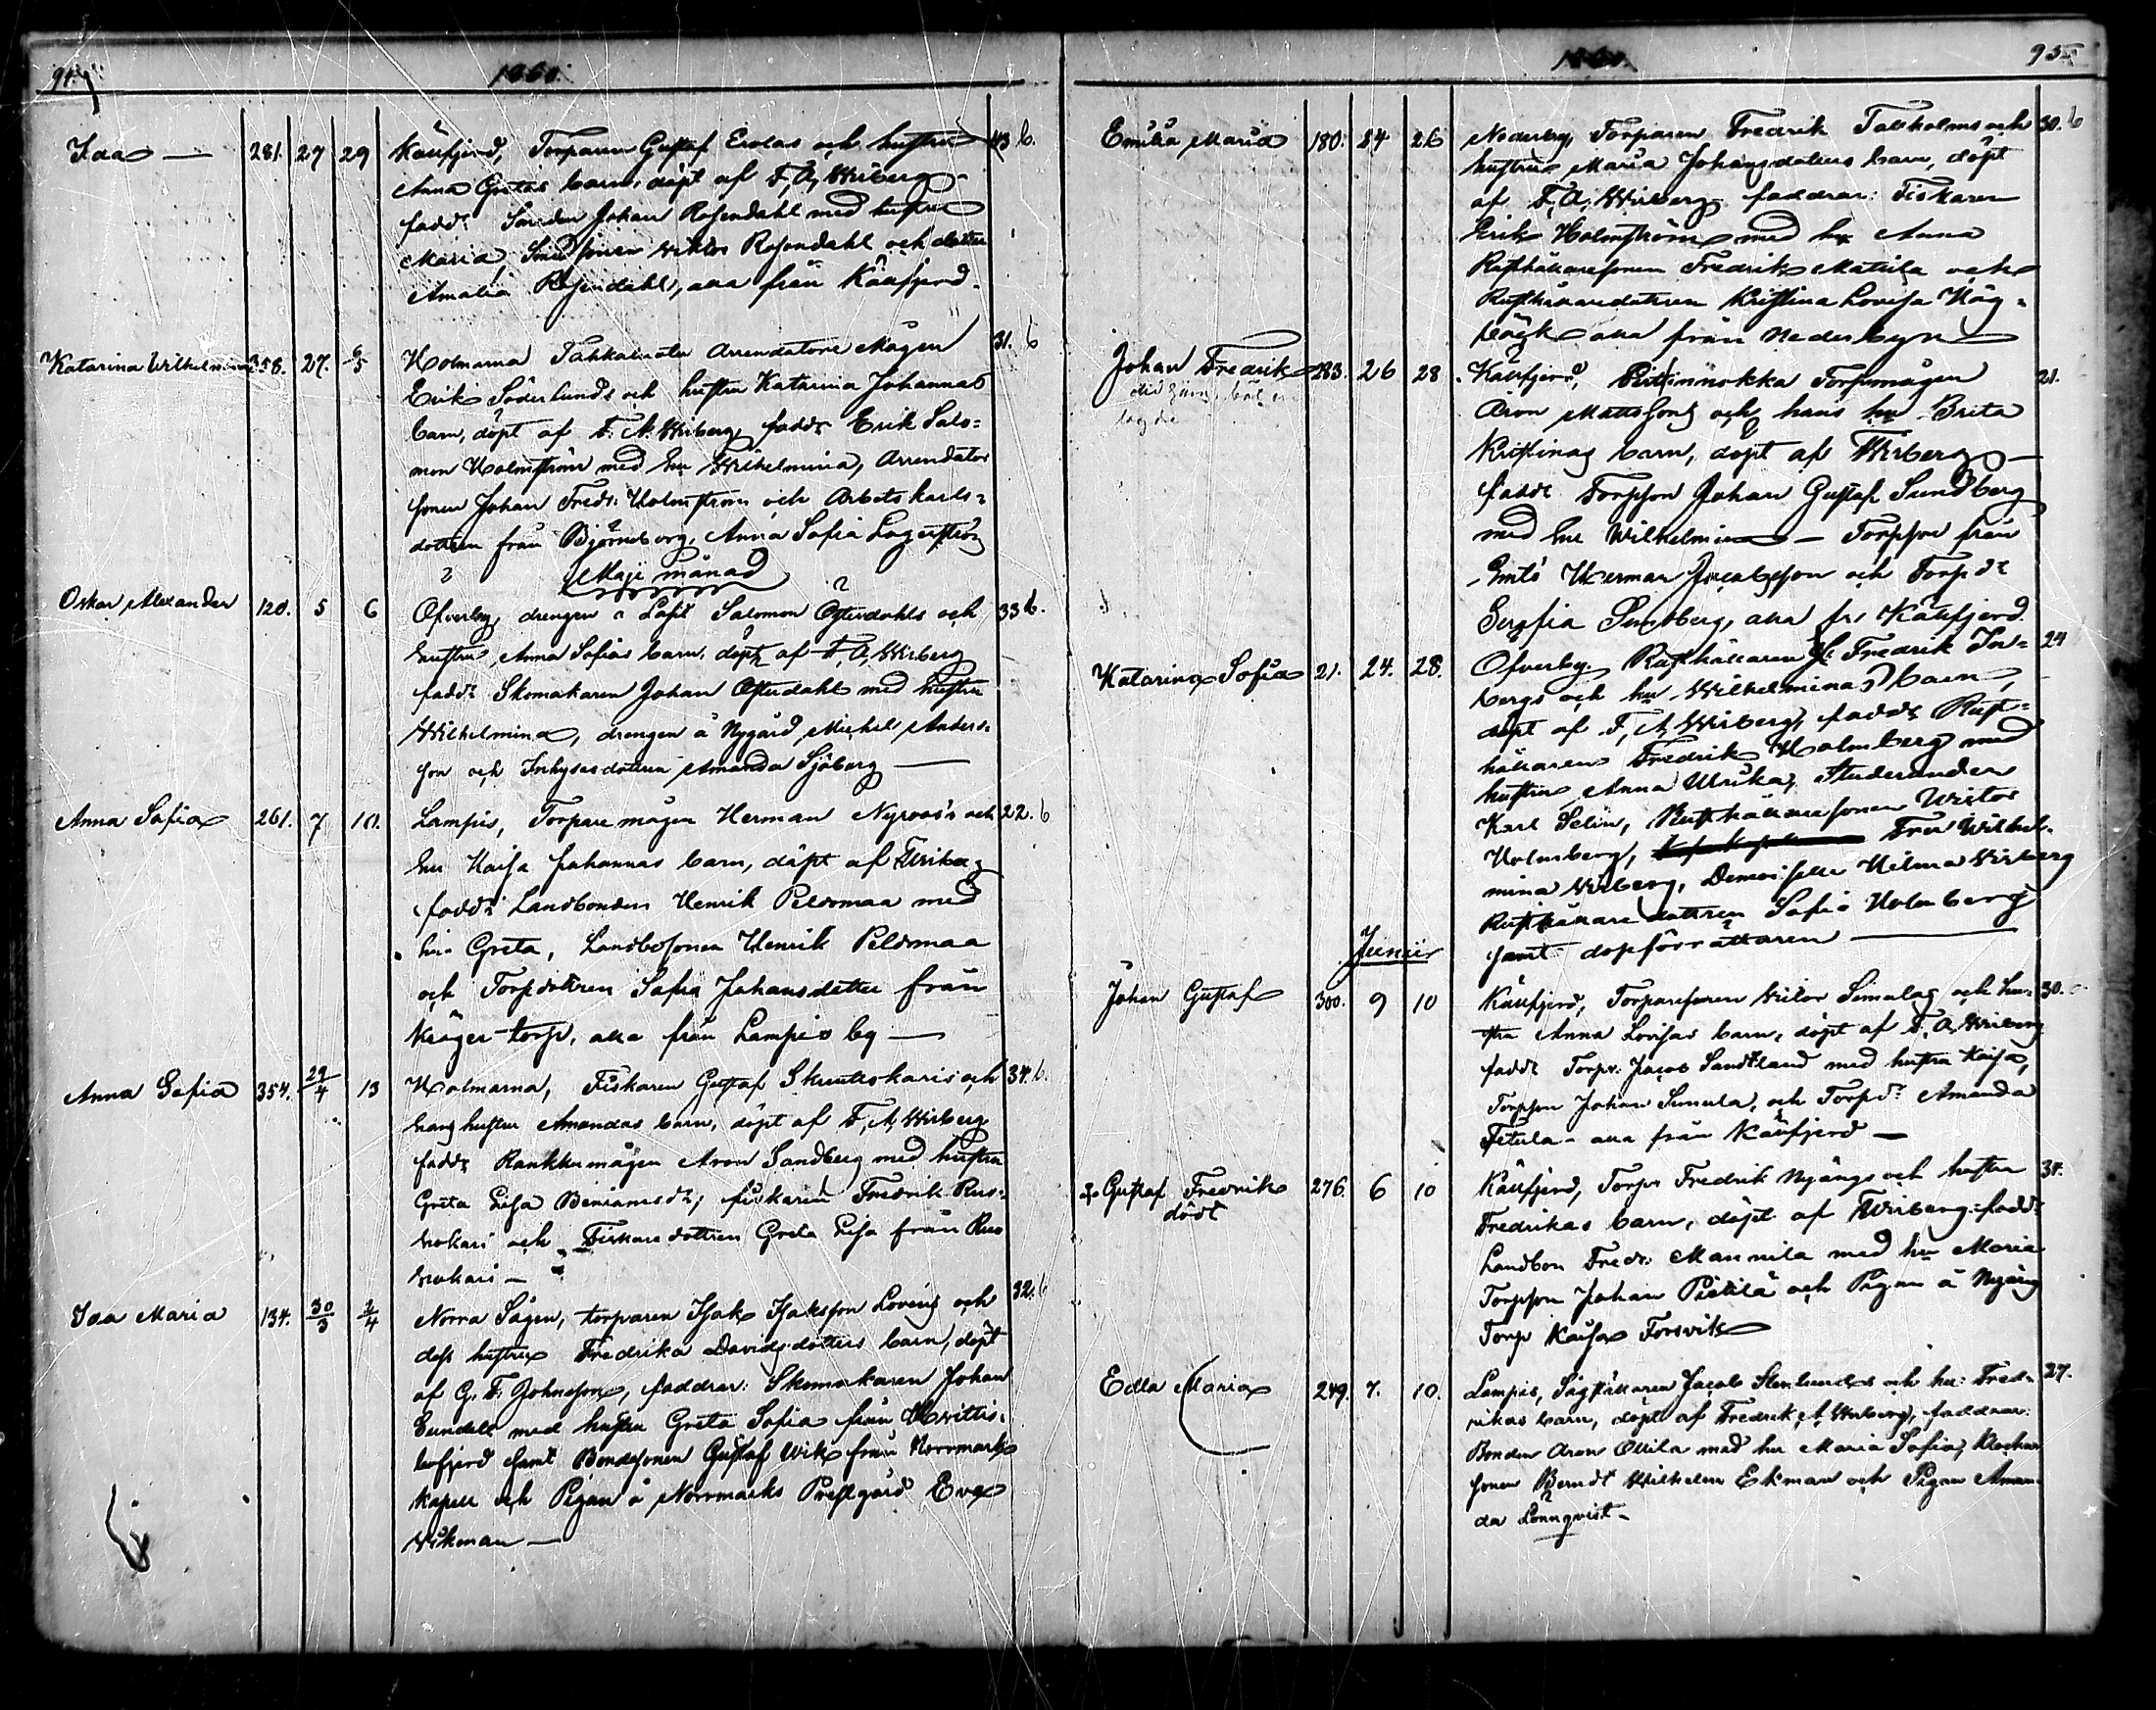 94.
1860.
Ida — 281. 27 29 Käufjerd, Torparen Gustaf Erolas och hustru 43 b.
Anna Gretas barn, döpt af F. A. Wirberg
fadd: Smeden Johan Rosendahl med hustru
Maria Smedsonen Viktor Rosendahl och dotter
Amalia Rosendahl, alla från Käufjerd.
Katarina Wilhelmina 358. 27. 6/5 Holmarna Arrendatore Mågen 31. b
Erik Söderlunds och hustru Katarina Johannas
barn, döpt af F. A. Wirberg, fadd: Erik Salo=
mon Holmström med hu Wilhelmina, Arrendator
sonen Johan Fredr: Holmström och Arbetskarls=
dottren från Björneborg, Anna Sofia Lagerström
Maji månad
Oskar Alexander 120. 5 6 Öfverby, drengen Salomon Österdahls och 33 b.
hustru Anna Sofias barn, döpt af F. A. Wirberg
fadd: Skomakaren Johan Österdahl med hustru
Wilhelmina, drengen å Nygård, Michel Anders=
son och Inhysesdottren Amanda Sjöberg —
Anna Sofia 261. 7 10. Lampis, Torpare mågen Herman Nyroos's och 22. b
hu Kaisa Johannas barn, döpt af FWirberg
fadd: Landbonden Henrik Peldomaa med
hu Greta, Landbosonen Henrik Peldomaa
och Torpdottren Sofia Johansdotter från
Kräger-torp, alla från Lampis by —
Anna Sofia 354. 29/4 13 Holmarna, Fiskaren Gustaf Skuuteskaris och 34. b.
hans hustru Amandas barn, döpt af F. A. Wirberg
fadd: Rankkumågen Aron Sandberg med hustru
Greta Lisa Beniamsdr, fiskaren Fredrik Rus=
och Fiskare dottren Greta Lisa från Rus
Ida Maria 134. 30/3 2/4 Norra Sågen, torparen Isak Isaksson Lovéns och 32. b
dess hustru Fredrika Davidsdotters barn, döpt
af G. F. Johnsson, faddrar: Skomakaren Johan
Lundell med hustru Greta Sofia från Hvittis=
bofjerd samt Bondesonen Gustaf Wik från Norrmarks
Kapell och Pigan å Norrmarks Prestgård Eva
Wikman —
1860.
95
Emilia Maria 180. 24 26 Nederby, Torparen Fredrik Tallholms och 30. b
hustrus Maria Johansdotters barn, döpt
af F. A. Wirberg faddrar: Fiskaren
Erik Holmström med hu Anna
Rusthållaresonen Fredrik Mattila och
Rusthållaredottren Kristina Lovisa Hög=
bäck alla från Nederbyn —
Johan Fredrik 283. 26 28 Käufjerd, Torpmågen 21.
Aron Mattssons och hans hu Brita
Kristinas barn, döpt af FWirberg —
fadd: Torpson Johan Gustaf Sundberg
med hu Wilhelmina — Torpson från
Herman Jacobsson och Torpdr
Serafia Sundberg, alla fr. Käufjerd
Katarina Sofia 21. 24. 28. Öfverby. Rusthållaren Fredrik In= 24
bergs och hu Wilhelminas barn,
döpt af F. A. Wirberg, fadd: Rust=
hållaren Fredrik Holmberg med
hustru Anna Ulrika, Studeranden
Karl Selin, Rusthållaresonen Wiktor
Holmberg, Fru Wilhel=
mina Wirberg, Demoiselle Hilma Wirberg
Rusthållare dottren Sofia Holmberg
samt dopförrättaren —
Junii
Johan Gustaf 300. 9 10 Käufjerd, Torparesonen Viktor Simulas och hu= 30.
stru Anna Lovisas barn, döpt af F. A. Wirberg
fadd: Torp: Jacob Sandstland med hustru Kaisa,
Torpson Johan Simula, och Torpdr Amanda
Fetula - alla från Käufjerd —
Gustaf Fredrik 276 6 10 Käufjerd, Torp: Fredrik Nyängs och hustru 34.
dödt
Fredrikas barn, döpt af FWirberg. fadd:
Landbon Fredr: Mannila med hu Maria
Torpson Johan Pietilä och Pigan å Nyäng
Torp Kaisa Forsvik
Edla Maria 249. 7. 10. Lampis, Sågställaren Jacob Stenlunds och hu: Fred= 27.
rikas barn, döpt af Fredrik A. Wirberg, faddrar:
Bonden Aron Ollila med hu Maria Sofia, Klockar
sonen Berndt Wilhelm Ekman och Pigan Aman=
da Lönnqvist —